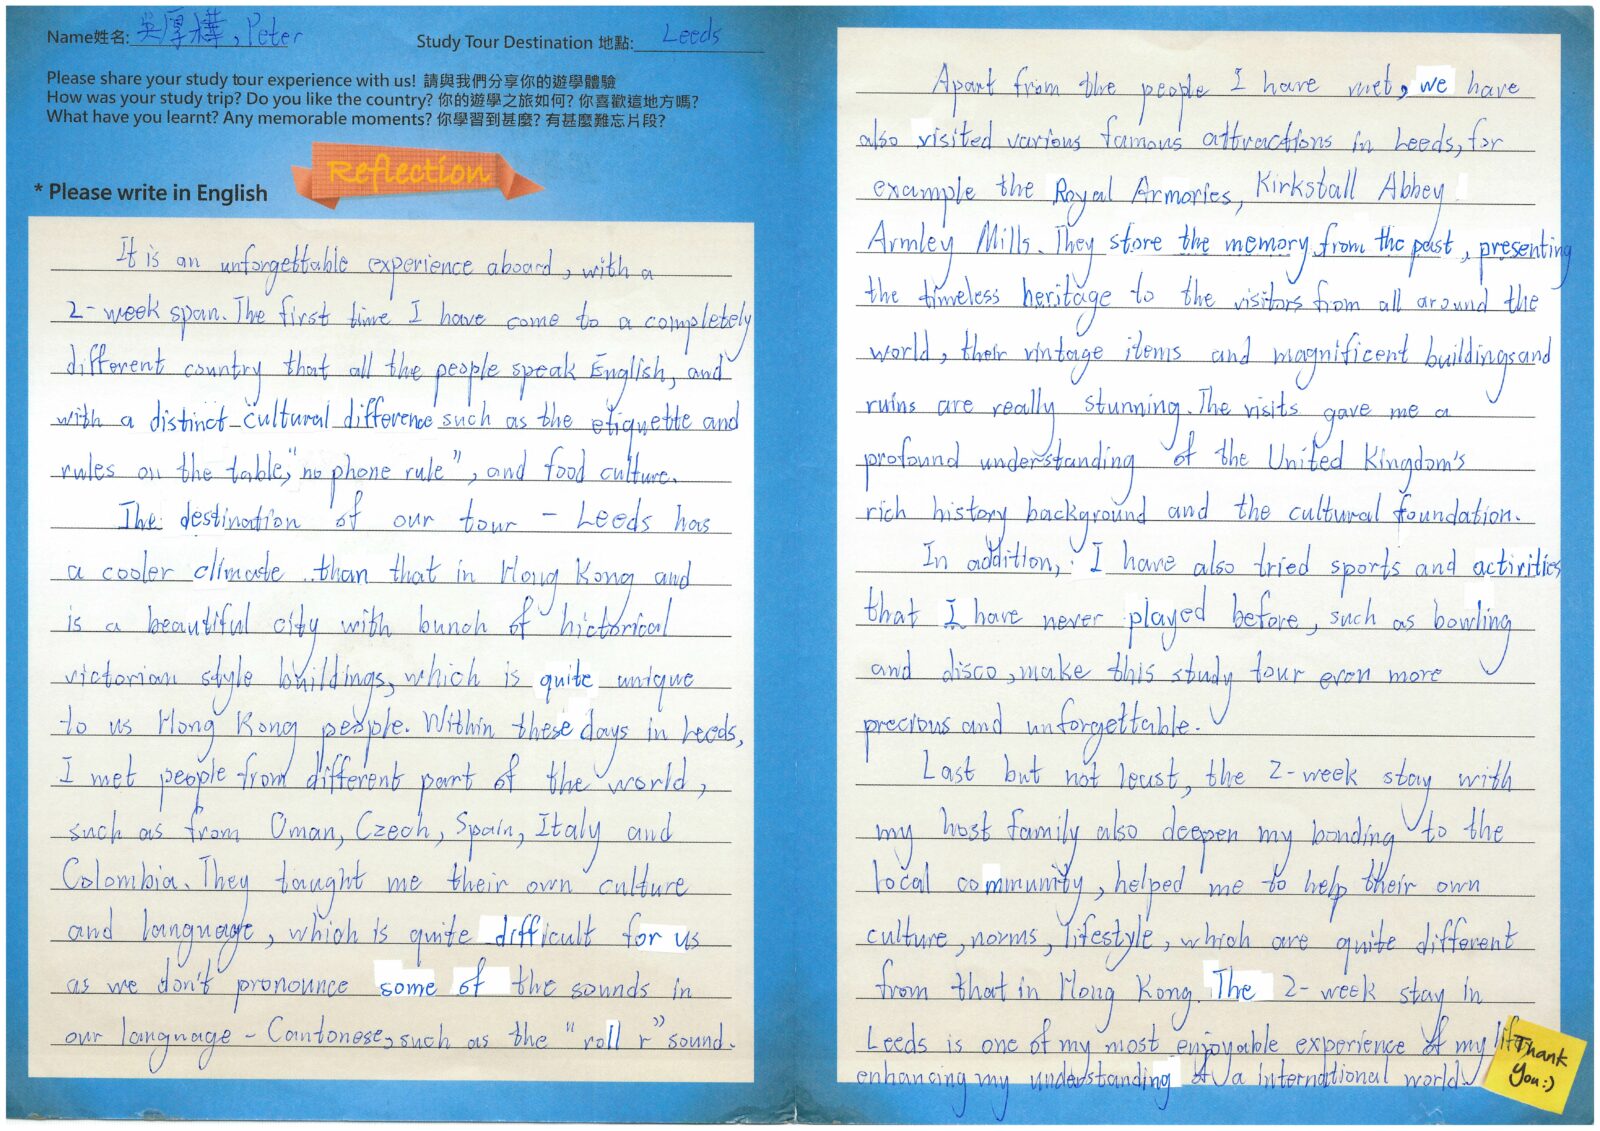 Name姓名: 吳厚樺, Peter
Study Tour Destination 地點: Leeds
Please share your study tour experience with us! 請與我們分享你的遊學體驗
How was your study trip? Do you like the country? 你的遊學之旅如何? 你喜歡這地方嗎?
What have you learnt? Any memorable moments? 你學習到甚麼? 有甚麼難忘片段?
Reflection
* Please write in English
It is an unforgettable experience aboard, with a
2-week span. The first time I have come to a completely
different country that all the people speak English, and
with a distinct cultural difference such as the etiquette and
rules on the table, "no phone rule", and food culture.
The destination of our tour - Leeds has
a cooler climate than that in Hong Kong and
is a beautiful city with bunch of hictorical
victorian style buildings, which is quite unique
to us Hong Kong people. Within these days in Leeds,
I met people from different part of the world,
such as from Oman, Czech, Spain, Italy and
Colombia. They taught me their own culture
and language, which is quite difficult for us
as we don't pronounce some of the sounds in
our language - Cantonese, such as the "roll r" sound.
Apart from the people I have met, we have
also visited various famous attractions in Leeds, for
example the Royal Armories, Kirkstall Abbey
Armley Mills. They store the memory from the past, presenting
the timeless heritage to the visitors from all around the
world, their vintage items and magnificent buildings and
ruins are really stunning. The visits gave me a
profound understanding of the United Kingdom's
rich history background and the cultural foundation.
In addition, I have also tried sports and activities
that I have never played before, such as bowling
and disco, make this study tour even more
precious and unforgettable.
Last but not least, the 2-week stay with
my host family also deepen my bonding to the
local community, helped me to help their own
culture, norms, lifestyle, which are quite different
from that in Hong Kong. The 2-week stay in
Leeds is one of my most enjoyable experience of my life
enhancing my understanding of a international world.
Thank
You:)